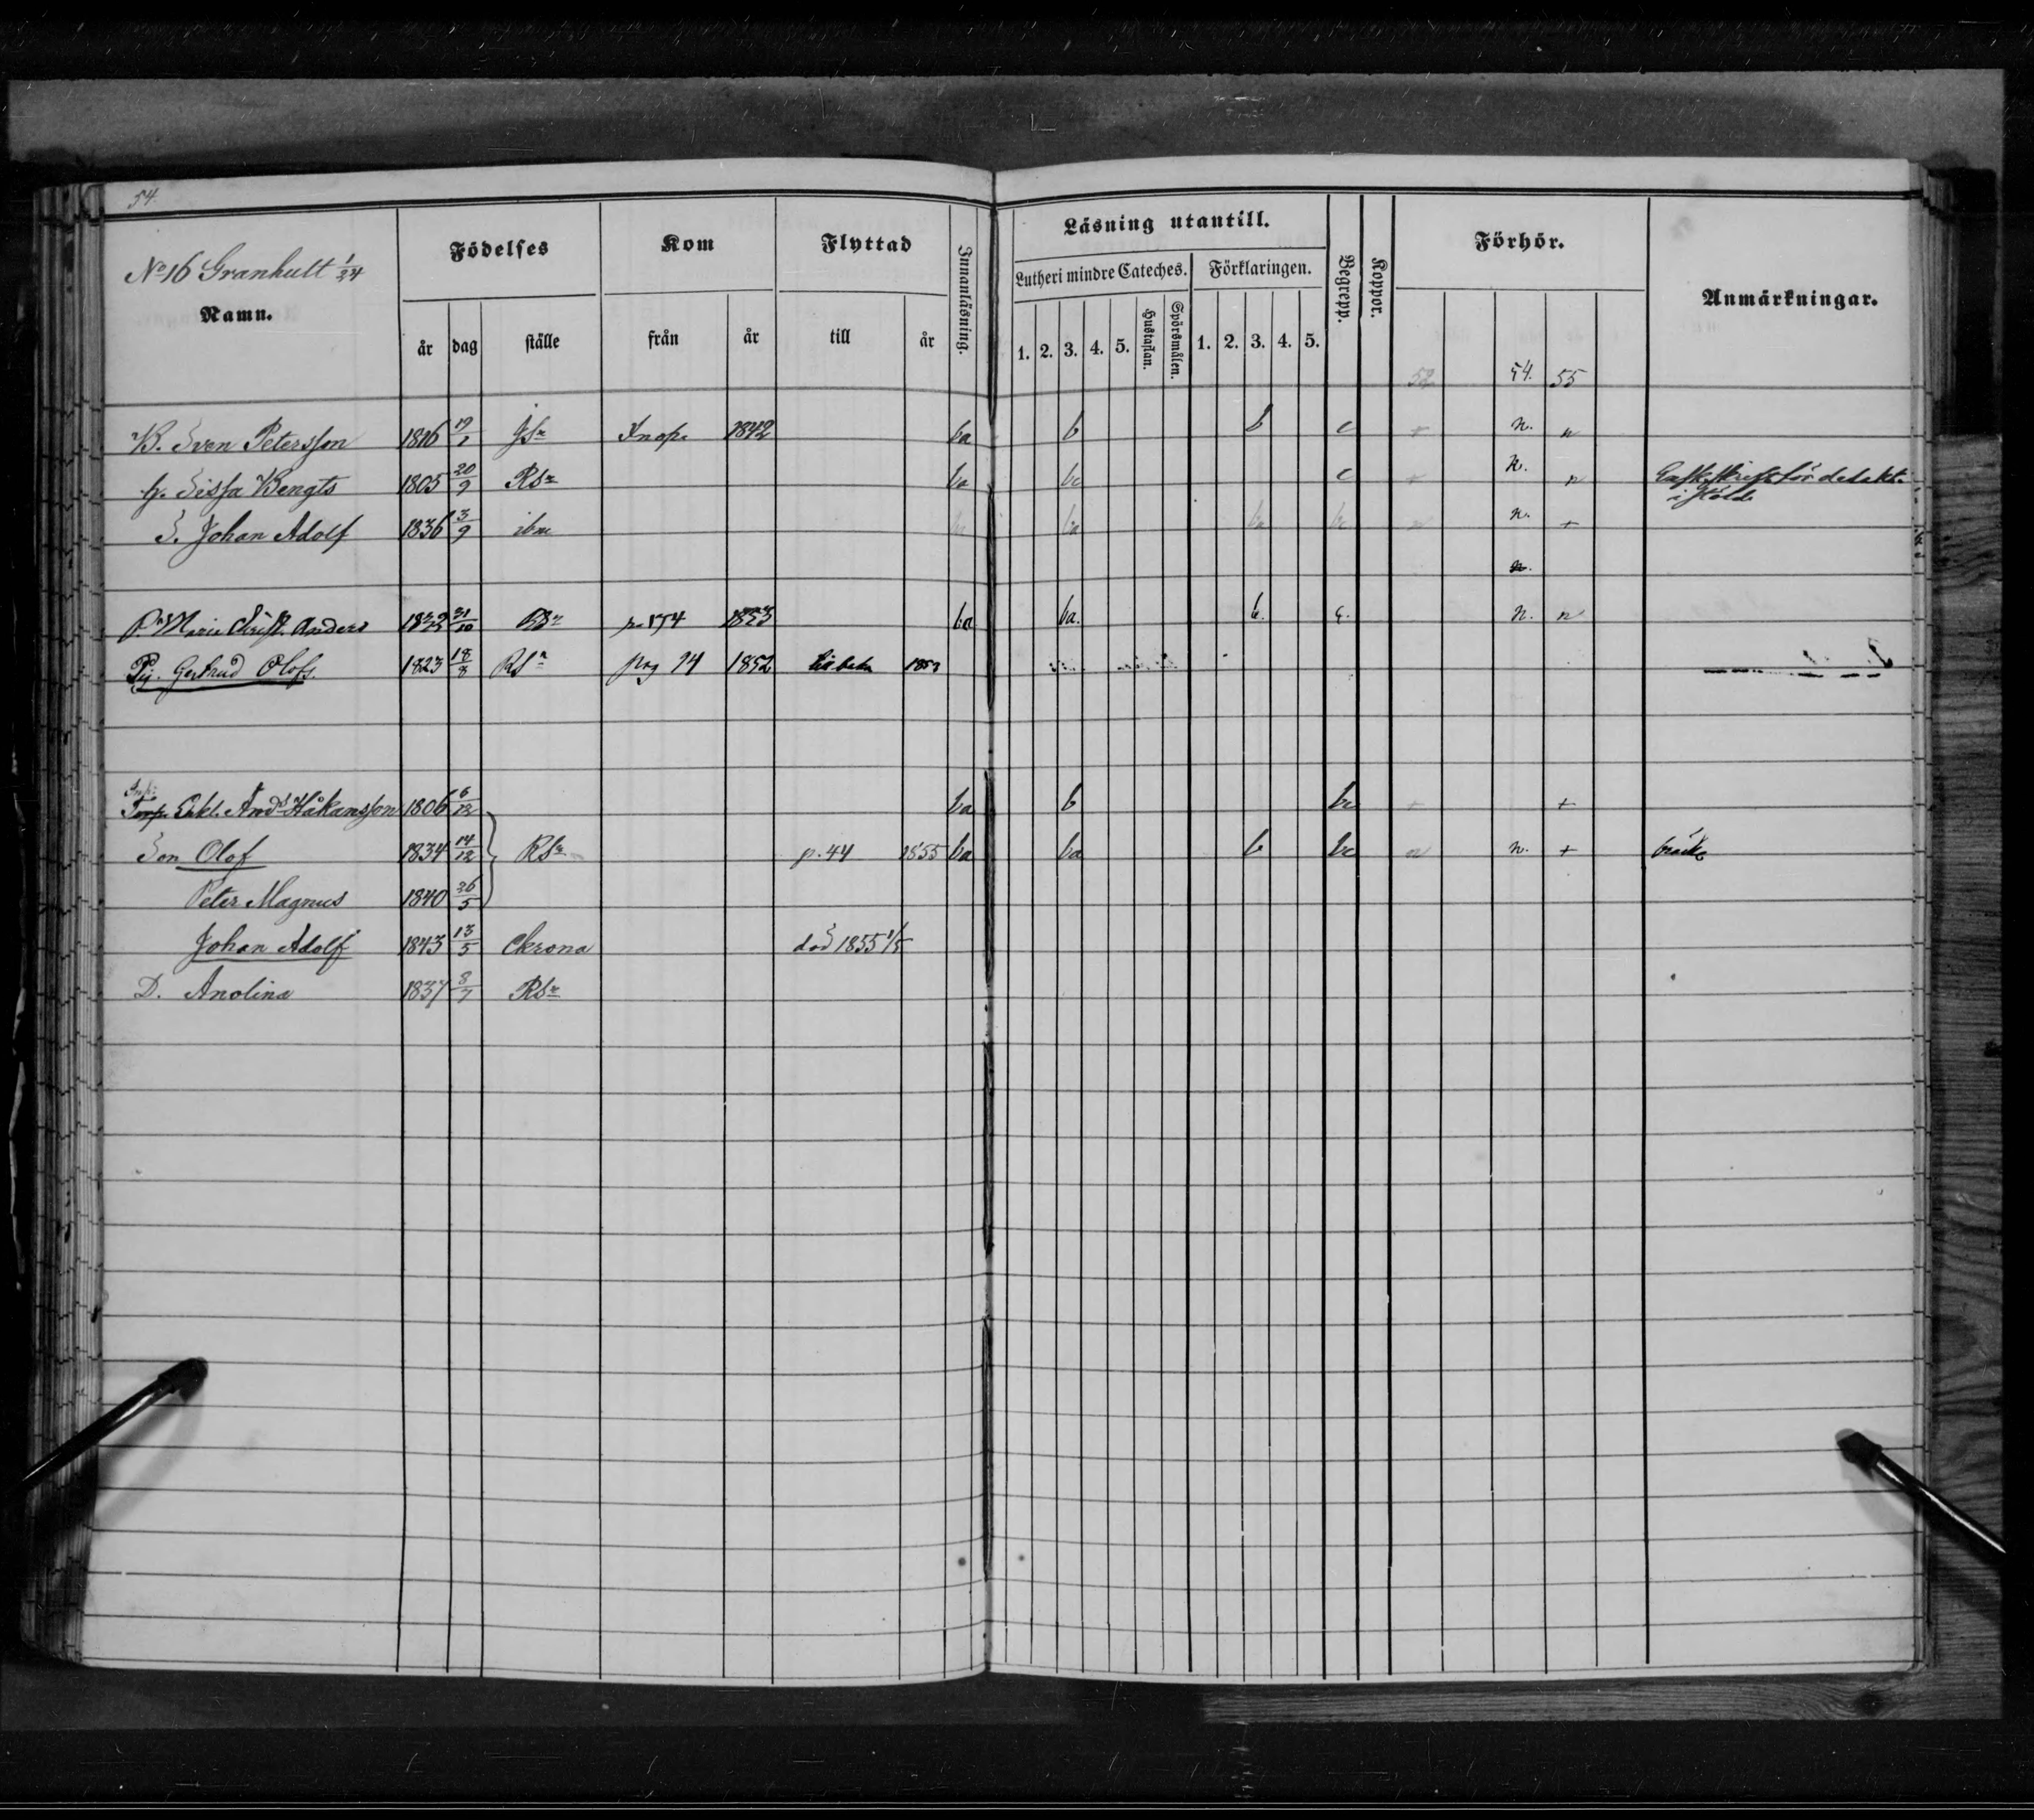 54
No 16 Granhult 1/24
Namn.
Födelses
år dag ställe
Kom
från år
Flyttad
till år
Innanläsning.
Läsning utantill.
Lutheri mindre Cateches.
1. 2. 3. 4. 5. Hustaflan. Spörsmålen.
Förklaringen.
1. 2. 3. 4. 5.
Begrepp.
Koppor.
Förhör.
52 54. 55
Anmärkningar.
B. Sven Petersson 1816 19/1 1842 ba b b c + n. n
h. Sissa Bengts 1805 20/9 Rsn ba bc c + n. n
S. Johan Adolf 1836 3/9 ibm ba n. +
n.
Marie Christ. Anders 31/10 p. 154 1853 ba ba. b. c. n. n
Pig. Gertrud Olofs. 1823 18/8 Rsn pag 94 1852 1853
Enkl. And. Håkansson 1806 6/12 ba b bc + +
Son Olof 1834 14/12 Rsn p. 44 1855 ba ba b bc n n. + bräck
Peter Magnus 1840 26/5
Johan Adolf 1843 13/5 Ckrona död 1855 1/5
D. Anolina 1837 8/7 Rsn